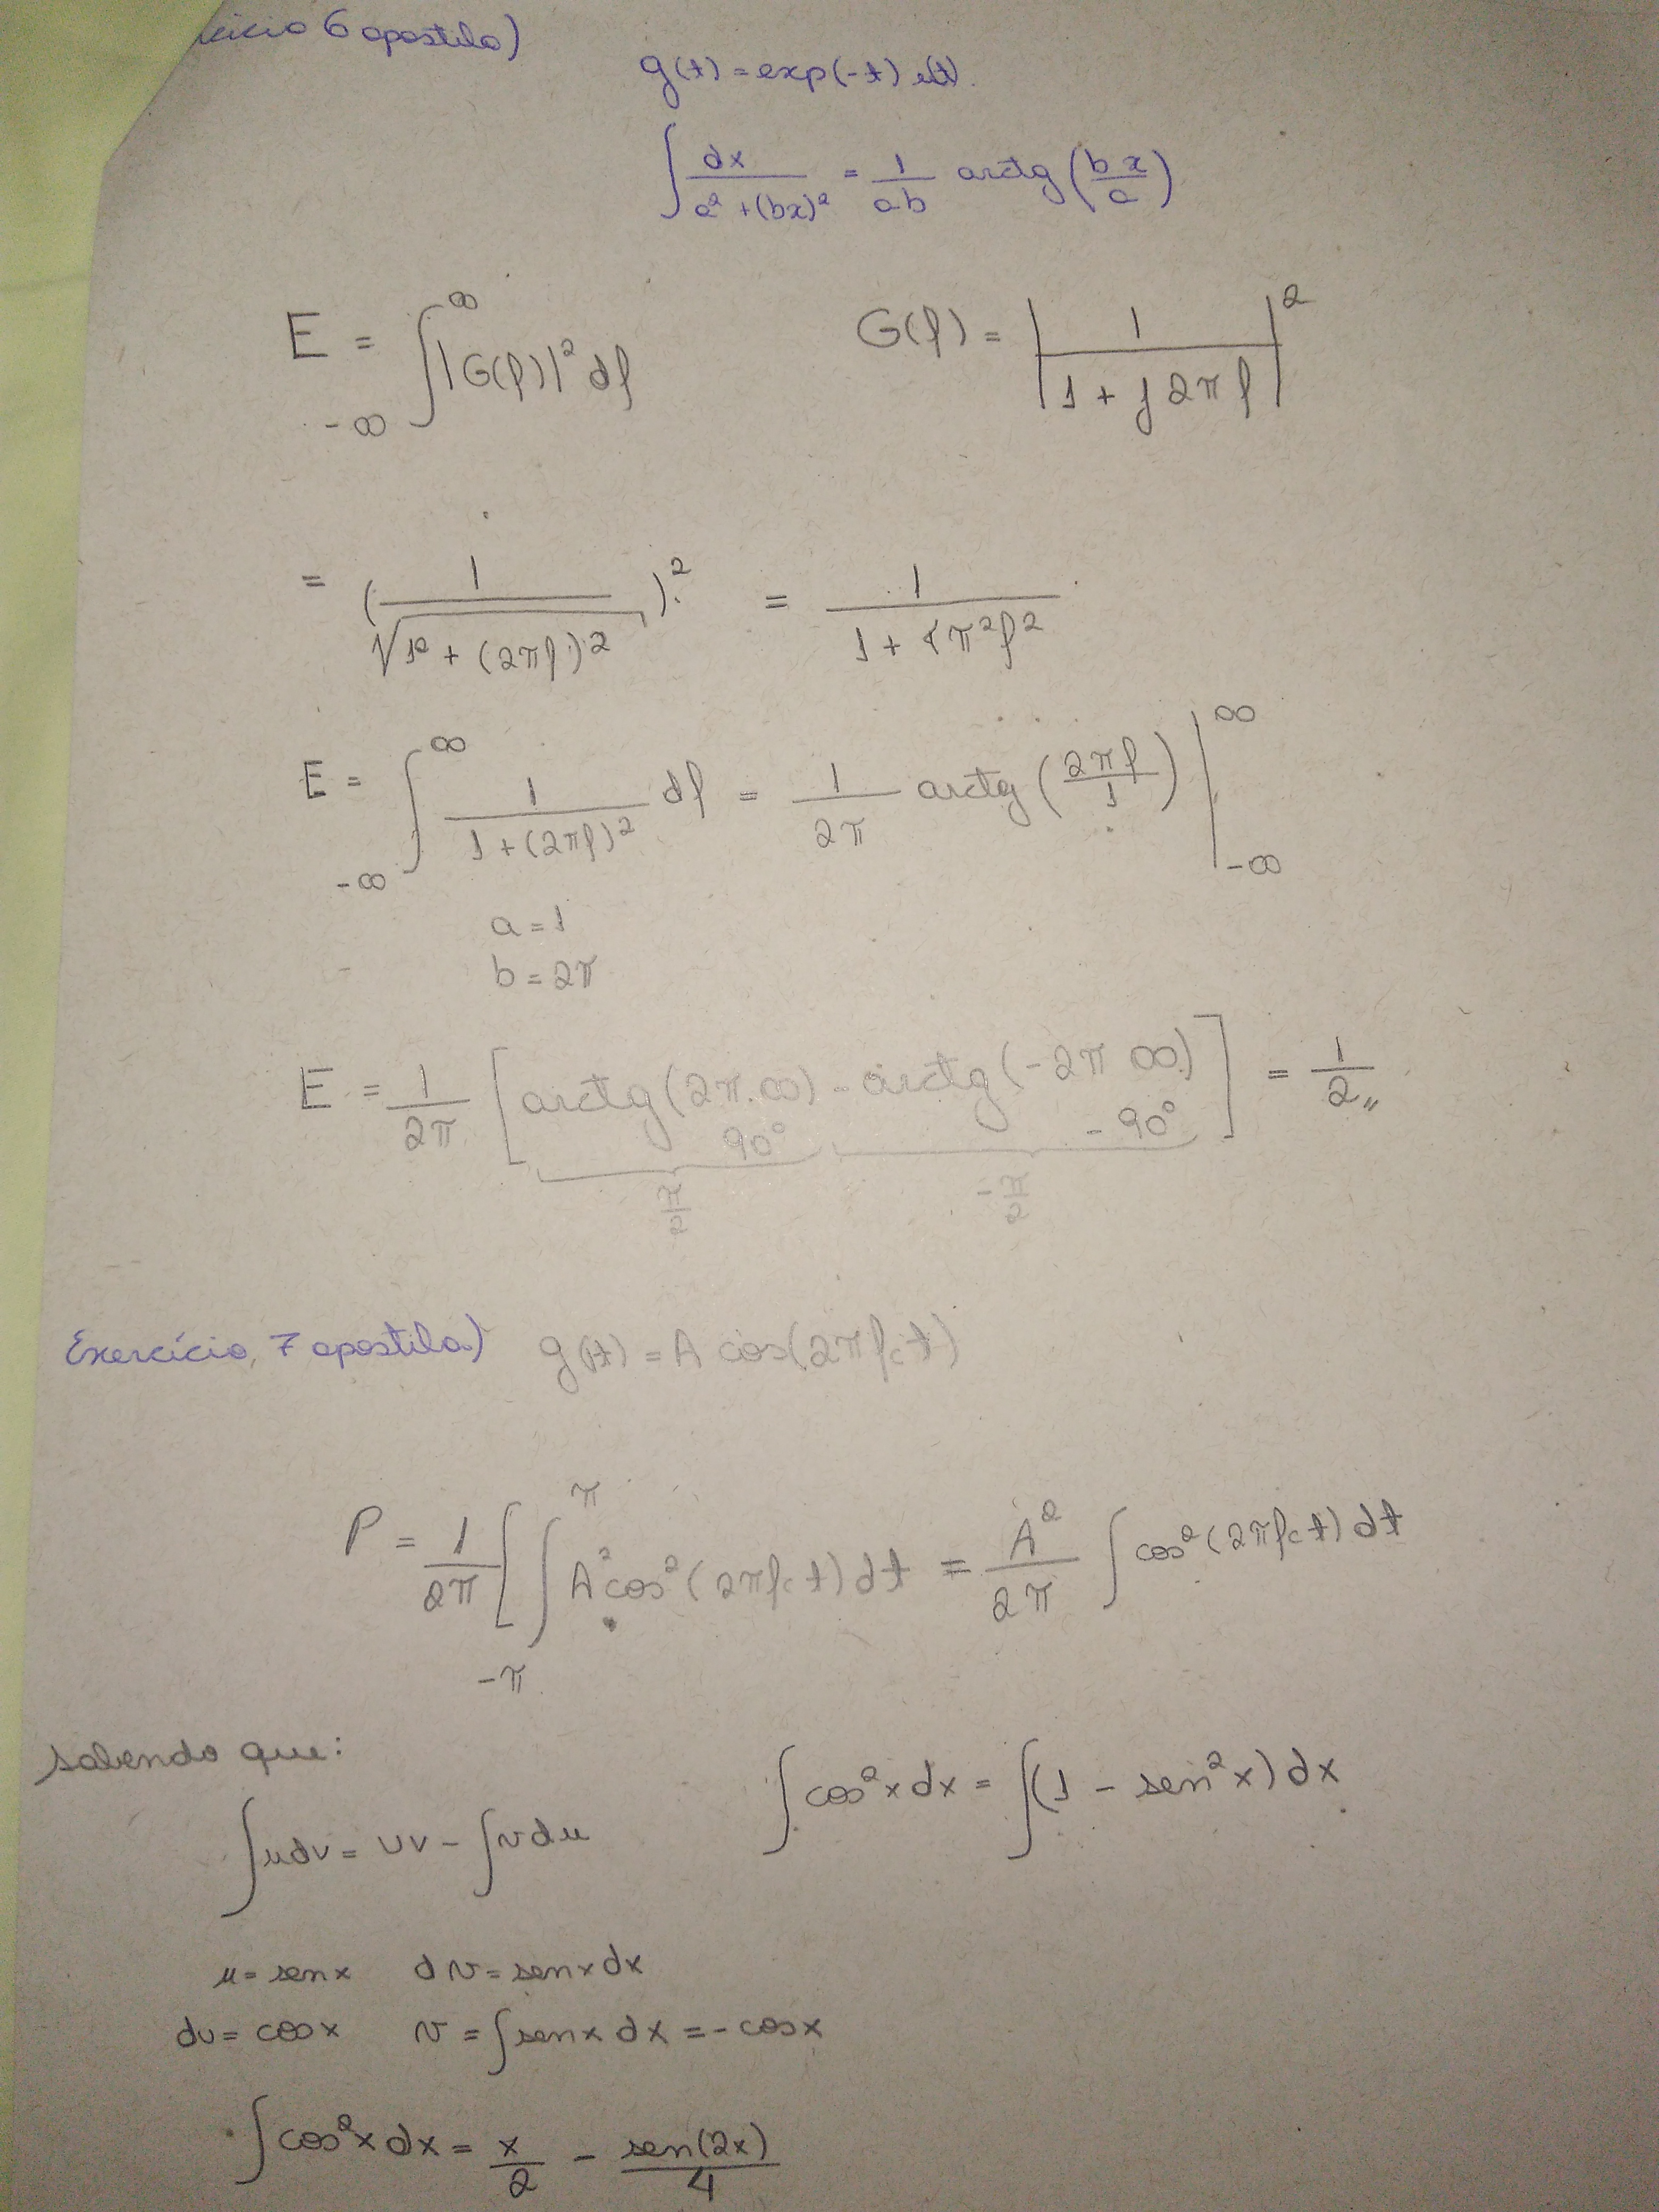 cício 6 apostila)
g(t) = exp(-t) u(t).
∫ dx / (a² + (bx)²) = 1/(ab) arctg (bx/a)
E = ∫_{-∞}^{∞} |G(f)|² df    G(f) = | 1 / (1 + j2πf) |²
= ( 1 / √(1² + (2πf)²) )² = 1 / (1 + 4π²f²)
E = ∫_{-∞}^{∞} 1 / (1 + (2πf)²) df = 1/(2π) arctg (2πf/1) |_{-∞}^{∞}
a = 1
b = 2π
E = 1/(2π) [ arctg(2π.∞) - arctg(-2π ∞) ] = 1/2 〃
90°    -90°
π/2    -π/2
Exercício 7 apostila) g(t) = A cos(2πfct)
P = 1/(2π) [ ∫_{-π}^{π} A² cos² (2πfct) dt = A²/(2π) ∫ cos² (2πfct) dt
sabendo que:
∫ u dv = uv - ∫ v du    ∫ cos²x dx = ∫ (1 - sen²x) dx
u = senx    dv = senx dx
du = cosx    v = ∫ senx dx = - cosx
∫ cos²x dx = x/2 - sen(2x)/4